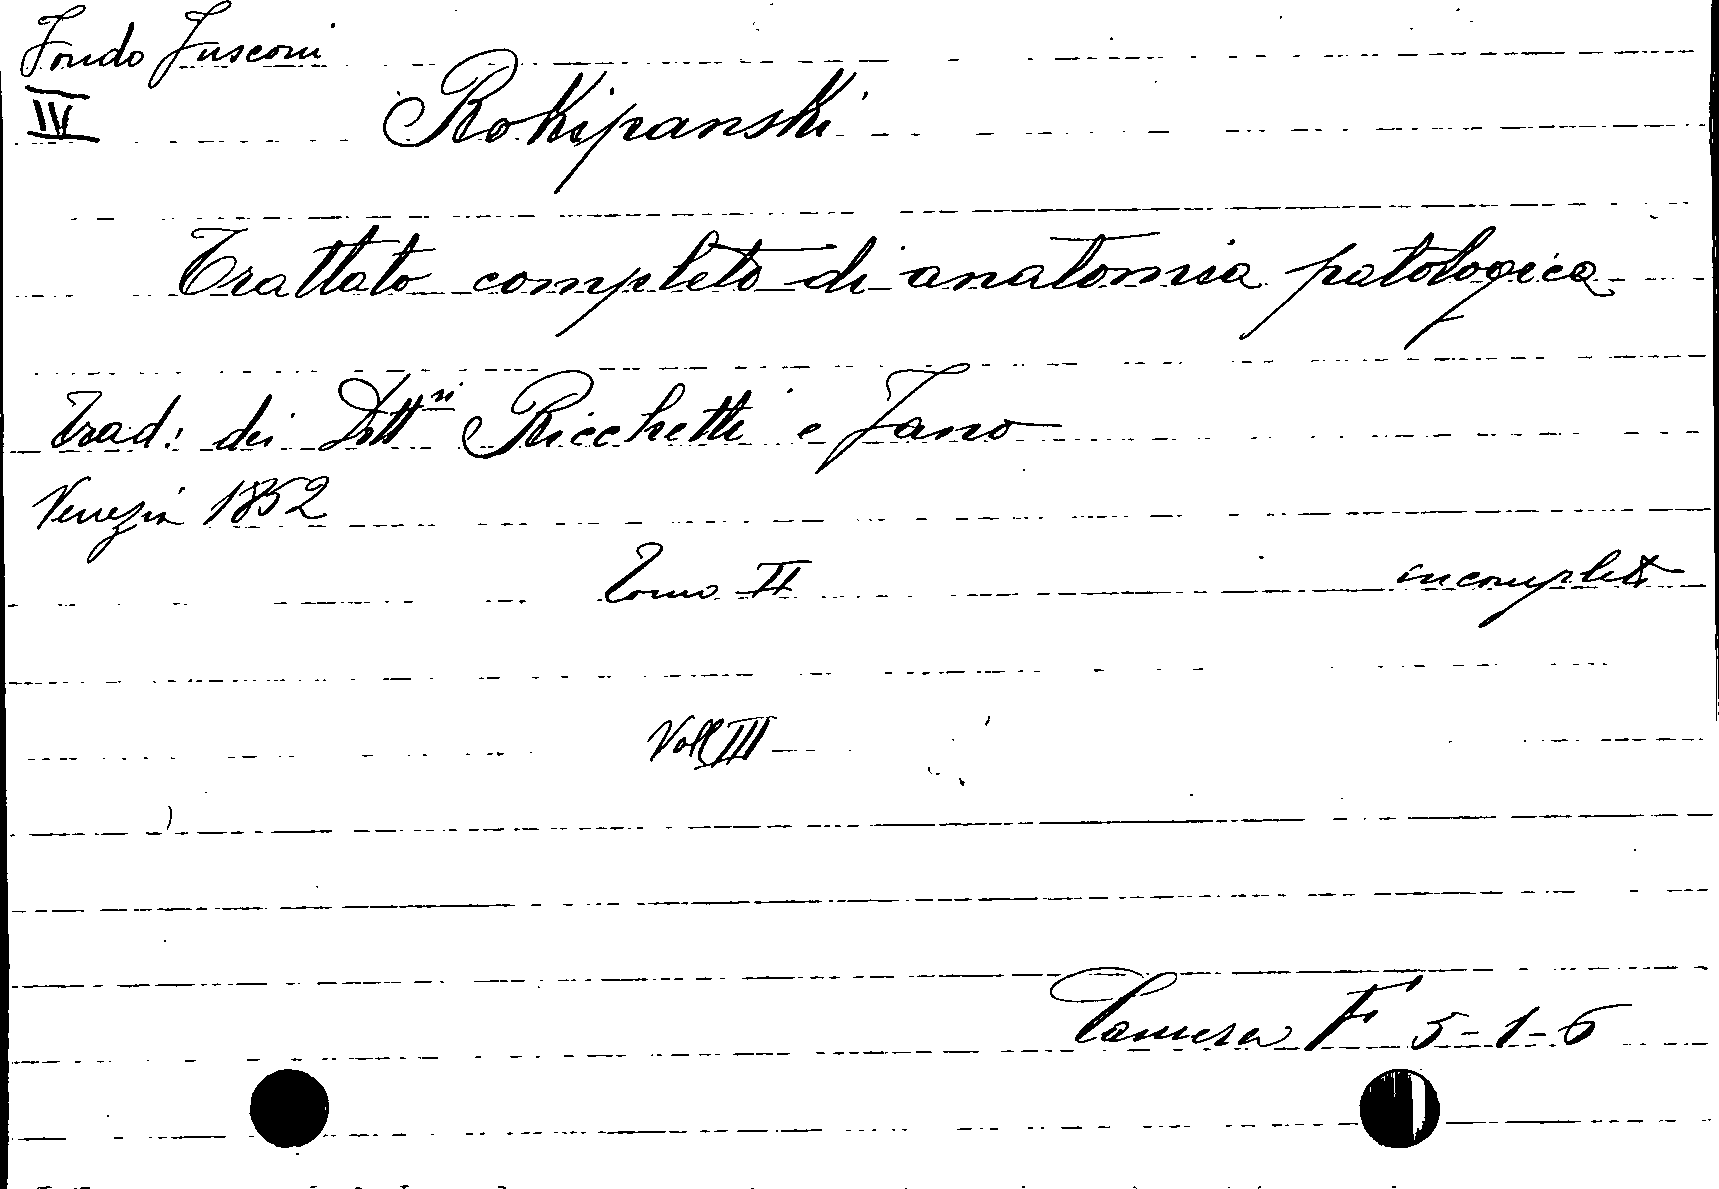 Fondo Fusconi
IV
Rokipanski
Trattato completo di anatomia patologica
Trad: dei Dott.ri Ricchetti e Fano
Venezia 1852
Tomo II incompleto
Voll III
Camera F 5-1-6